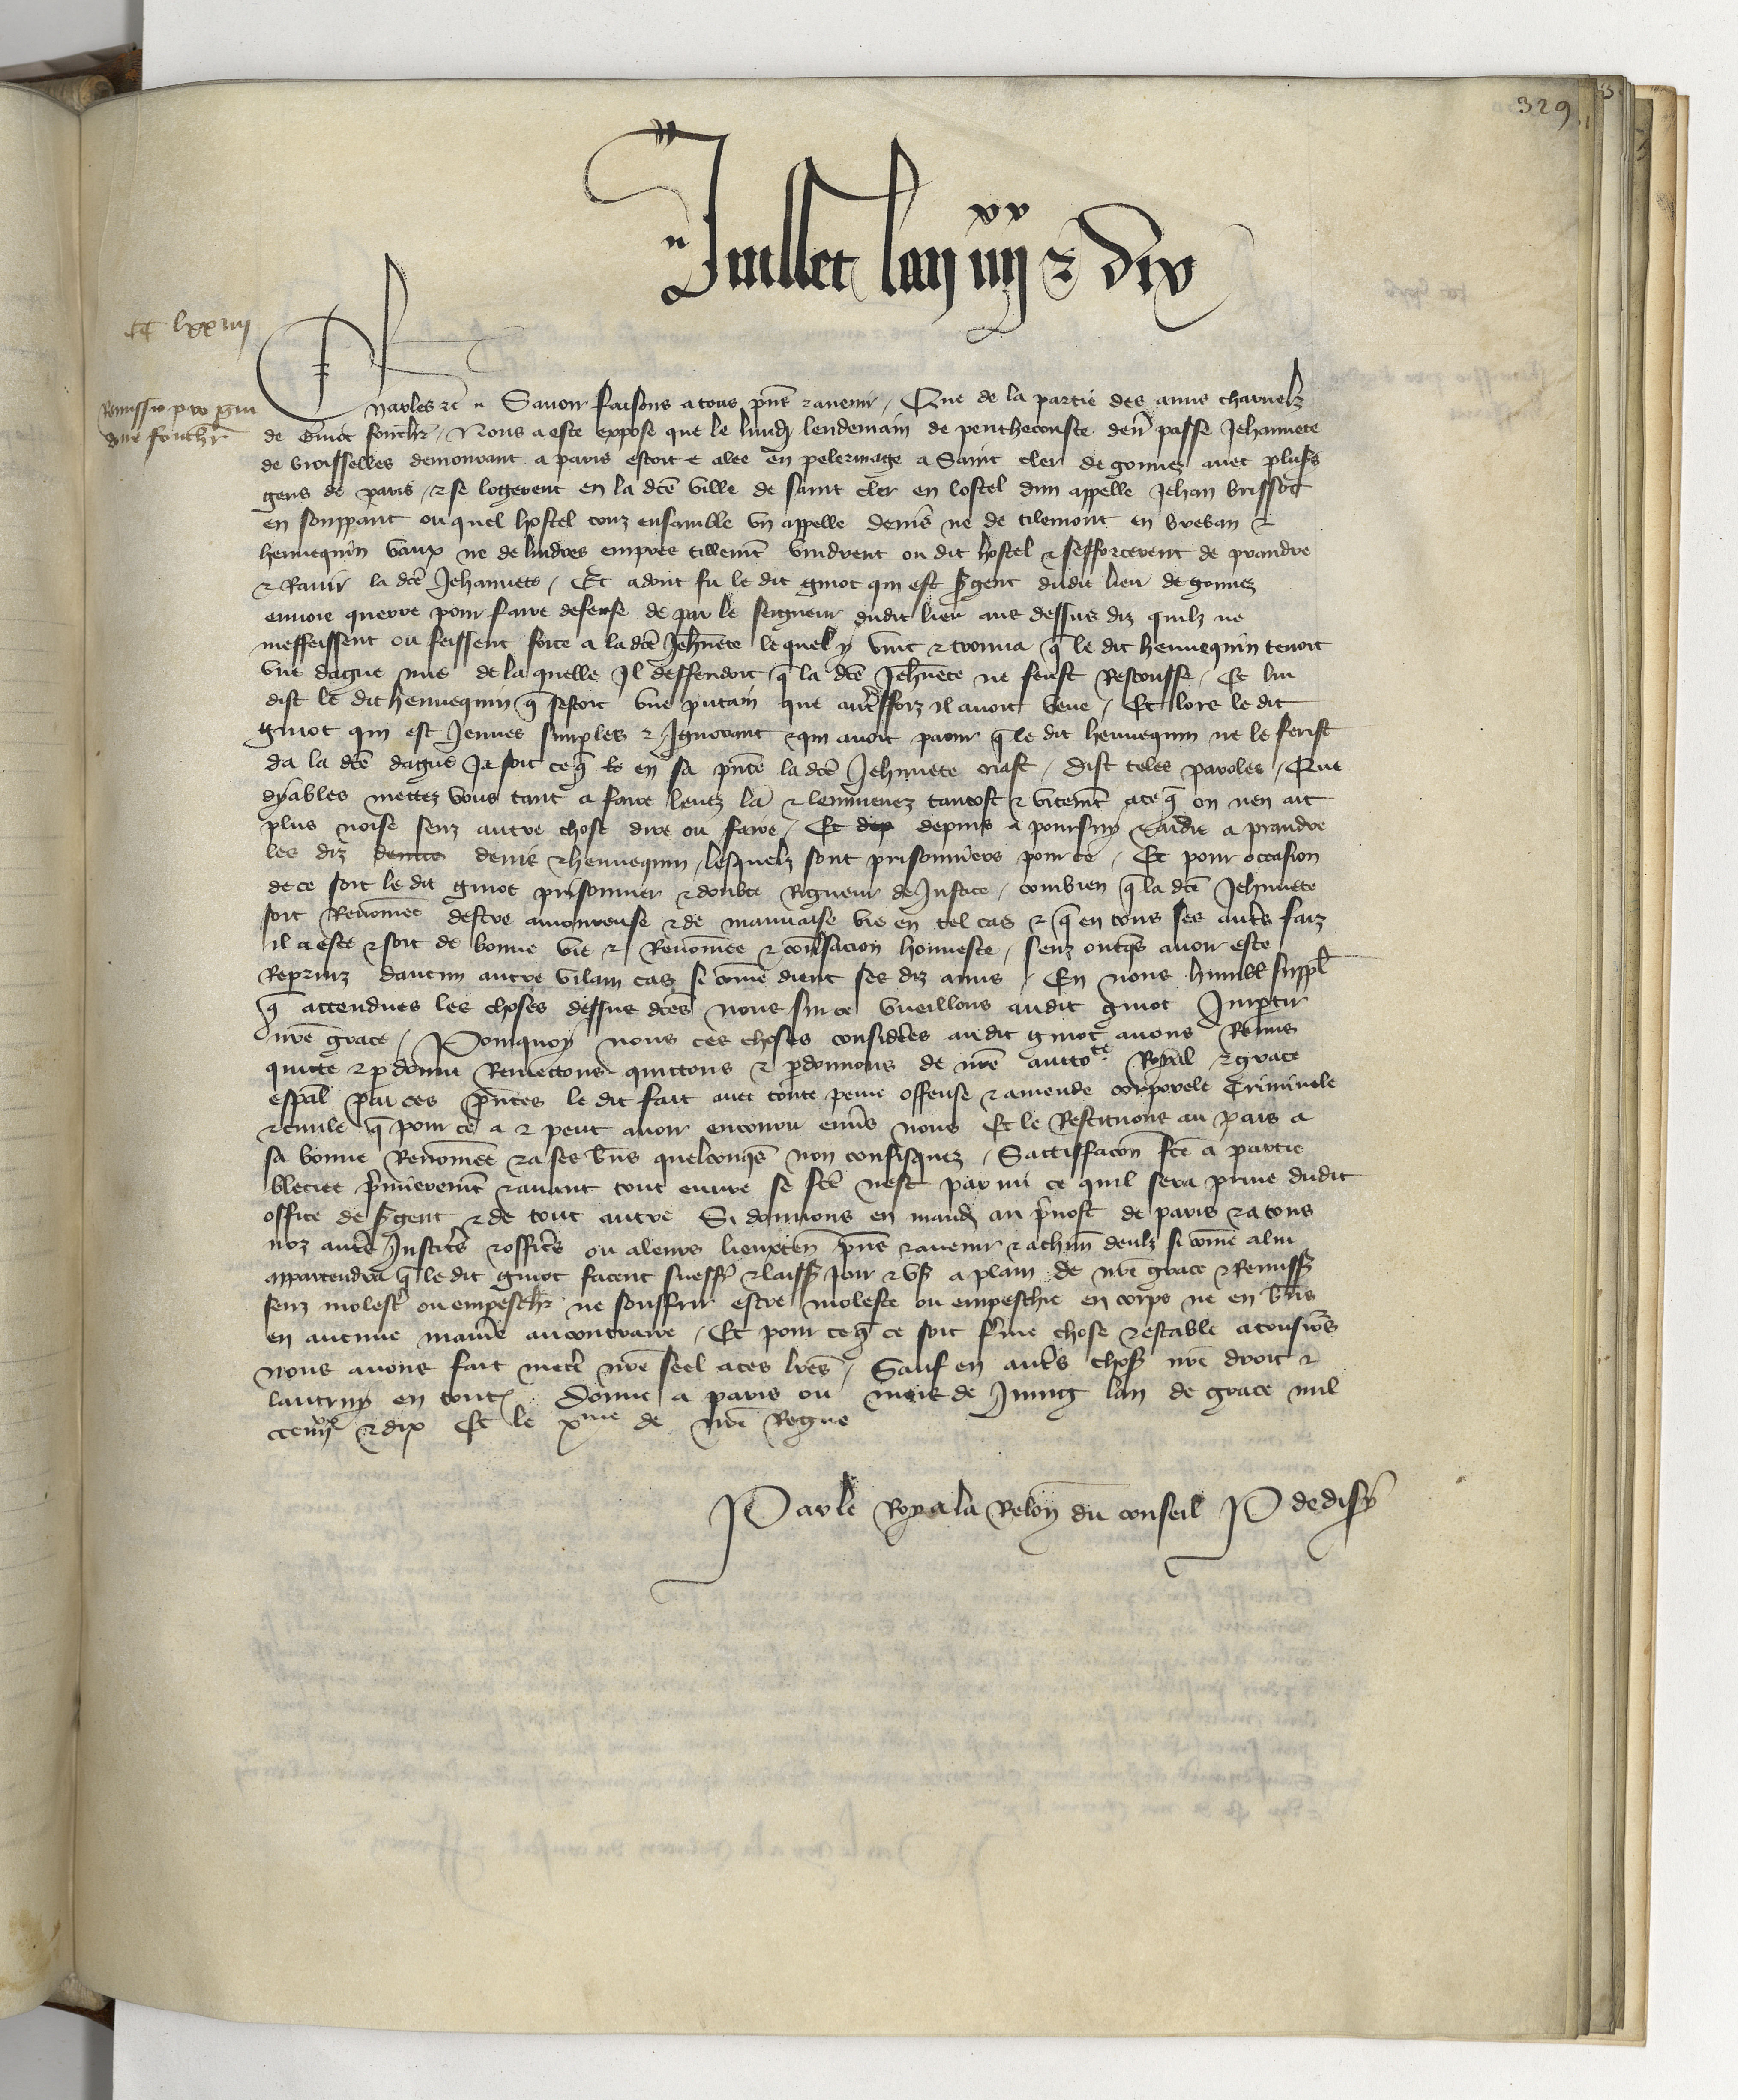 329
Juillet lan iiii xx & dix
CC lxxiiii
Remissio pro Gui
Charles &c. Savoir faisons a tous pns & avenir / Que de la partie des amis charnelz
de Guiot Nous a este expose que le lundi lendemain de penthecouste dern passe Jehannete
de Broisselles demourant a paris estoit alee en pelerinage a Saint cler de gomez avec plus
gens de paris / & se logerent en la dce ville de saint cler en lostel dun appelle Jehan brissot
en souppant ou quel hostel touz ensamble un appelle denis ne de tilemont en breban &
hennequin vaux ne de lindres empres tillemt vindrent ou dit hostel & sefforcerent de prandre
& Ravir la dce Jehannete / Et adont fu le dit guiot qui est sgent dudit lieu de gomez
envoie querre pour faire defense de par le seigneur dudit lieu aus dessus diz quilz ne
meffeissent ou feissent force a la dce Jehnete le quel y vint & trouva q le dit hennequin tenoit
une dague nue de la quelle Il deffendoit q la dce Jehnete ne feust Rescousse / Et lui
dist le dit hennequin q sestoit une putain que autsfforz il avoit veue / Et lors le dit
guiot qui est Jeunes simples & Ignorant & qui avoit paour q le dit hennequin ne le ferist
da la dce dague Ja soit ce q en sa pnce la dce Jehnnete criast / dist teles paroles / Que
dyables mettez vous tant a faire levez la & lemmenez tantost & vitemt a ce q on nen ait
plus noise senz autre chose dire ou faire / Et dep depuis a poursuy & aidie a prandre
les diz denis & hennequin / lesquelz sont prisonniers pour ce / Et pour occasion
de ce soit le dit guiot prisonnier & doubte Rigueur de Justice / combien q la dce Jehnnete
soit Renomee destre amoureuse & de mauvaise vie en tel cas & q en tous ses auts faiz
il a este & soit de bonne vie & Renomee & convsacion honneste / senz onqs avoir este
Reprins daucun autre vilain cas si come dient ses diz amis / En nous humblt suppl
q attendues les choses dessus dces nous sur ce vueillons audit guiot Impartir
nre grace / Pourquoy nous ces choses considees au dit guiot avons Remis
quicte & pdonne Remectons quictons & pdonnons de nre auctote Royal & grace
espal par ces pntes le dit fait avec toute peine offense & amende corporele criminele
& civile q pour ce a & peut avoir encouru envs nous Et le Restituons au pais a
sa bonne Renomee & a ses bns quelconqs non confisquez / Sattisfacon fce a partie
bleciee pmierement & avant tout euvre se fce nest par mi ce quil sera prive dudit
office de sgent & de tout autre Si donnons en mand au pvost de paris & a tous
noz auts Justics & offics ou a leurs lieuxten pns & avenir & a chun deulz si come a lui
appartendra q le dit guiot facent sueffr & laiss joir & us a plain de nre grace & Remiss
senz molest ou empesch ne souffrir estre moleste ou empeschie en corps ne en bns
en aucune manie au contraire / Et pour ce q ce soit fme chose & estable a tousjos
nous avons fait mect nre seel a ces lres / Sauf en auts chos nre droit &
lautruy en tout donne a paris ou mois de Juing lan de grace mil
CCC iiii xx & dix Et le xme de nre Regne
Par le Roy a la Relon du conseil P de disy